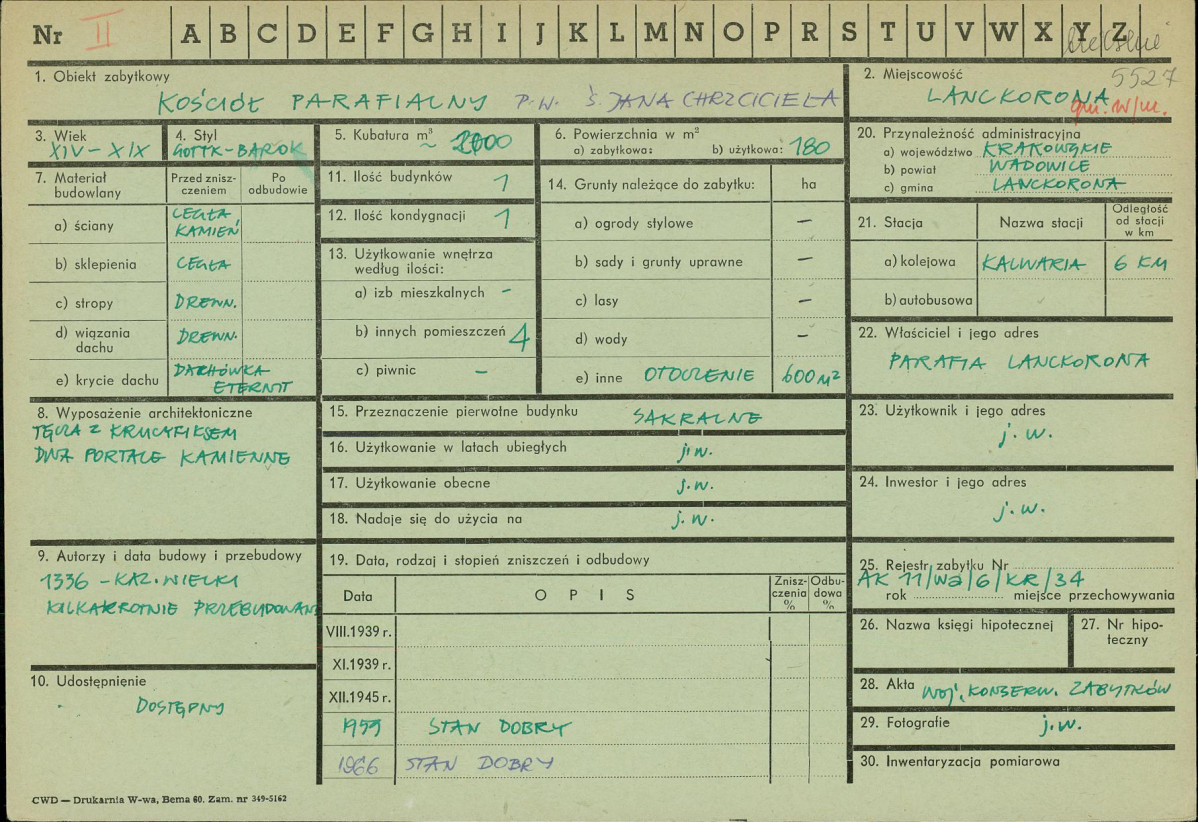 Nr II A B C D E F G H I J K L M N O P R S T U V W X Y Z
5527
1. Obiekt zabytkowy
KOŚCIÓŁ PARAFIALNY P.W. Ś. JANA CHRZCICIELA
2. Miejscowość
LANCKORONA
gm. w/m.
3. Wiek
XIV – XIX
4. Styl
GOTYK-BAROK
5. Kubatura m³
6. Powierzchnia w m²
a) zabytkowa: b) użytkowa: 180
7. Materiał budowlany
Przed zniszczeniem
Po odbudowie
a) ściany CEGŁA KAMIEŃ
b) sklepienia CEGŁA
c) stropy DREWN.
d) wiązania dachu DREWN.
e) krycie dachu DACHÓWKA ETERNIT
8. Wyposażenie architektoniczne
TĘCZA Z KRUCYFIKSEM
DWA PORTALE KAMIENNE
9. Autorzy i data budowy i przebudowy
1336 – KAZ. WIELKI
KILKAKROTNIE PRZEBUDOWAN
10. Udostępnienie
DOSTĘPNY
11. Ilość budynków 1
12. Ilość kondygnacji 1
13. Użytkowanie wnętrza według ilości:
a) izb mieszkalnych –
b) innych pomieszczeń 4
c) piwnic –
14. Grunty należące do zabytku: ha
a) ogrody stylowe –
b) sady i grunty uprawne –
c) lasy –
d) wody –
e) inne OTOCZENIE 600 m²
15. Przeznaczenie pierwotne budynku SAKRALNE
16. Użytkowanie w latach ubiegłych j.w.
17. Użytkowanie obecne j.w.
18. Nadaje się do użycia na j.w.
19. Data, rodzaj i stopień zniszczeń i odbudowy
Data OPIS Zniszczenia % Odbudowa %
VIII.1939 r.
XI.1939 r.
XII.1945 r.
1959 STAN DOBRY
1966 STAN DOBRY
20. Przynależność administracyjna
a) województwo KRAKOWSKIE
b) powiat WADOWICE
c) gmina LANCKORONA
21. Stacja Nazwa stacji Odległość od stacji w km
a) kolejowa KALWARIA 6 KM
b) autobusowa
22. Właściciel i jego adres
PARAFIA LANCKORONA
23. Użytkownik i jego adres
j.w.
24. Inwestor i jego adres
j.w.
25. Rejestr zabytku Nr
rok miejsce przechowywania
26. Nazwa księgi hipotecznej
27. Nr hipoteczny
28. Akta WOJ. KONSERW. ZABYTKÓW
29. Fotografie j.w.
30. Inwentaryzacja pomiarowa
CWD — Drukarnia W-wa, Bema 60. Zam. nr 349-5162